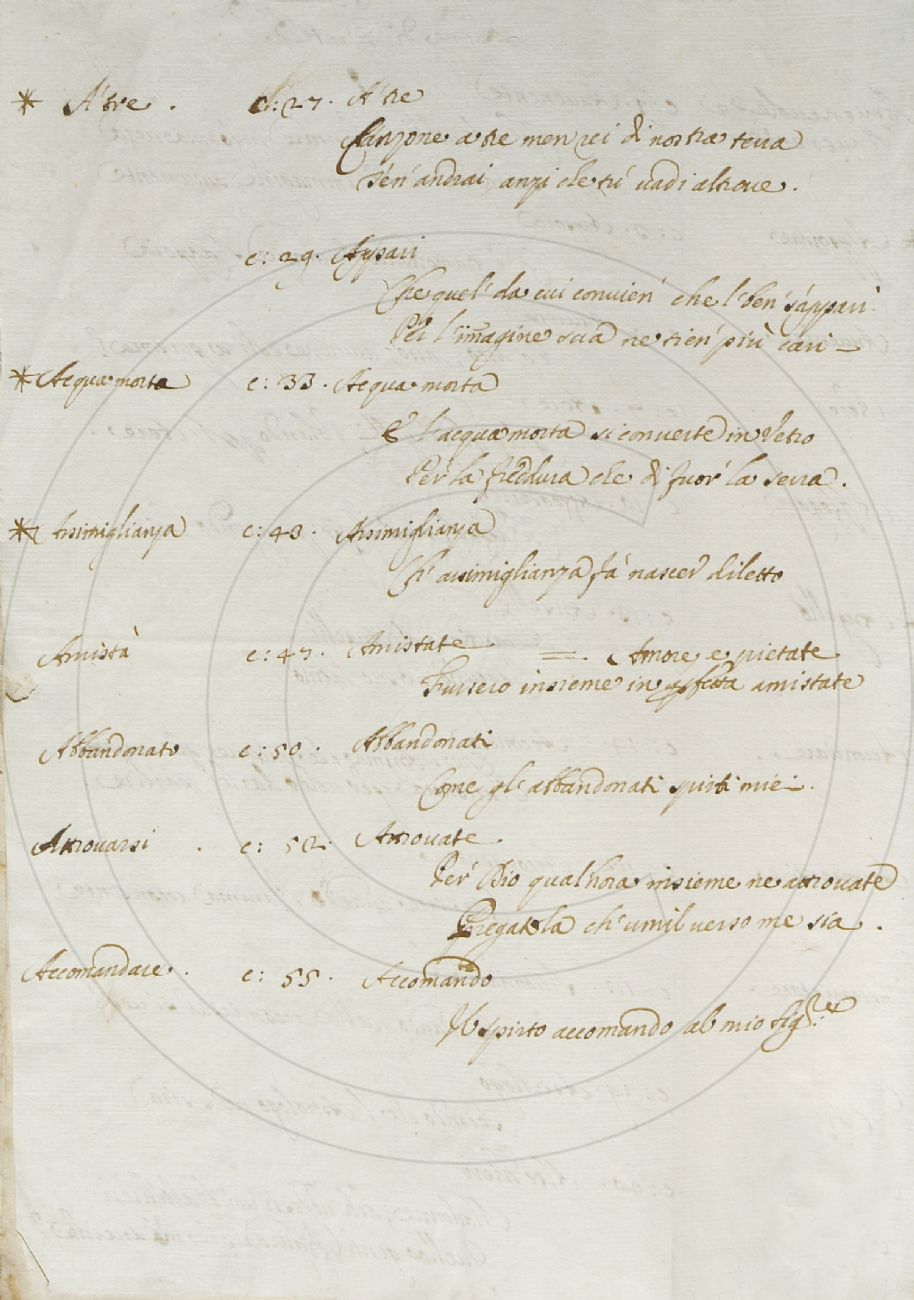 * A' tre . c: 27. A' tre
Canzone a tre men rei di nostra terra
Sen' andrai anzi che tu' vadi altroue.
c: 29. Appari
Che quel' da cui convien' che l' ben' s'appari
Per l'imagine sua ne tien' più cari
* Acqua morta c: 33. Acqua morta
E l'acqua morta si converte in Vetro
Per la freddura che di fuor' la serra.
* Assimiglianza c: 43. Assimiglianza
Ch' assimiglianza fa' nascer diletto
Amistà c: 47. Amistate = . Amore e pietate
Fussero insieme in amistate
Abbandonato c: 50. Abbandonati
Come gl' abbandonati spirti miei.
Attrovarsi . c: 52. Attrouate.
Per Dio qual'hora insieme ne attrouate
Pregatela ch' umil verso me sia .
Accomandare. c: 55. Accomando
Il spirto accomando al mio Sig.re